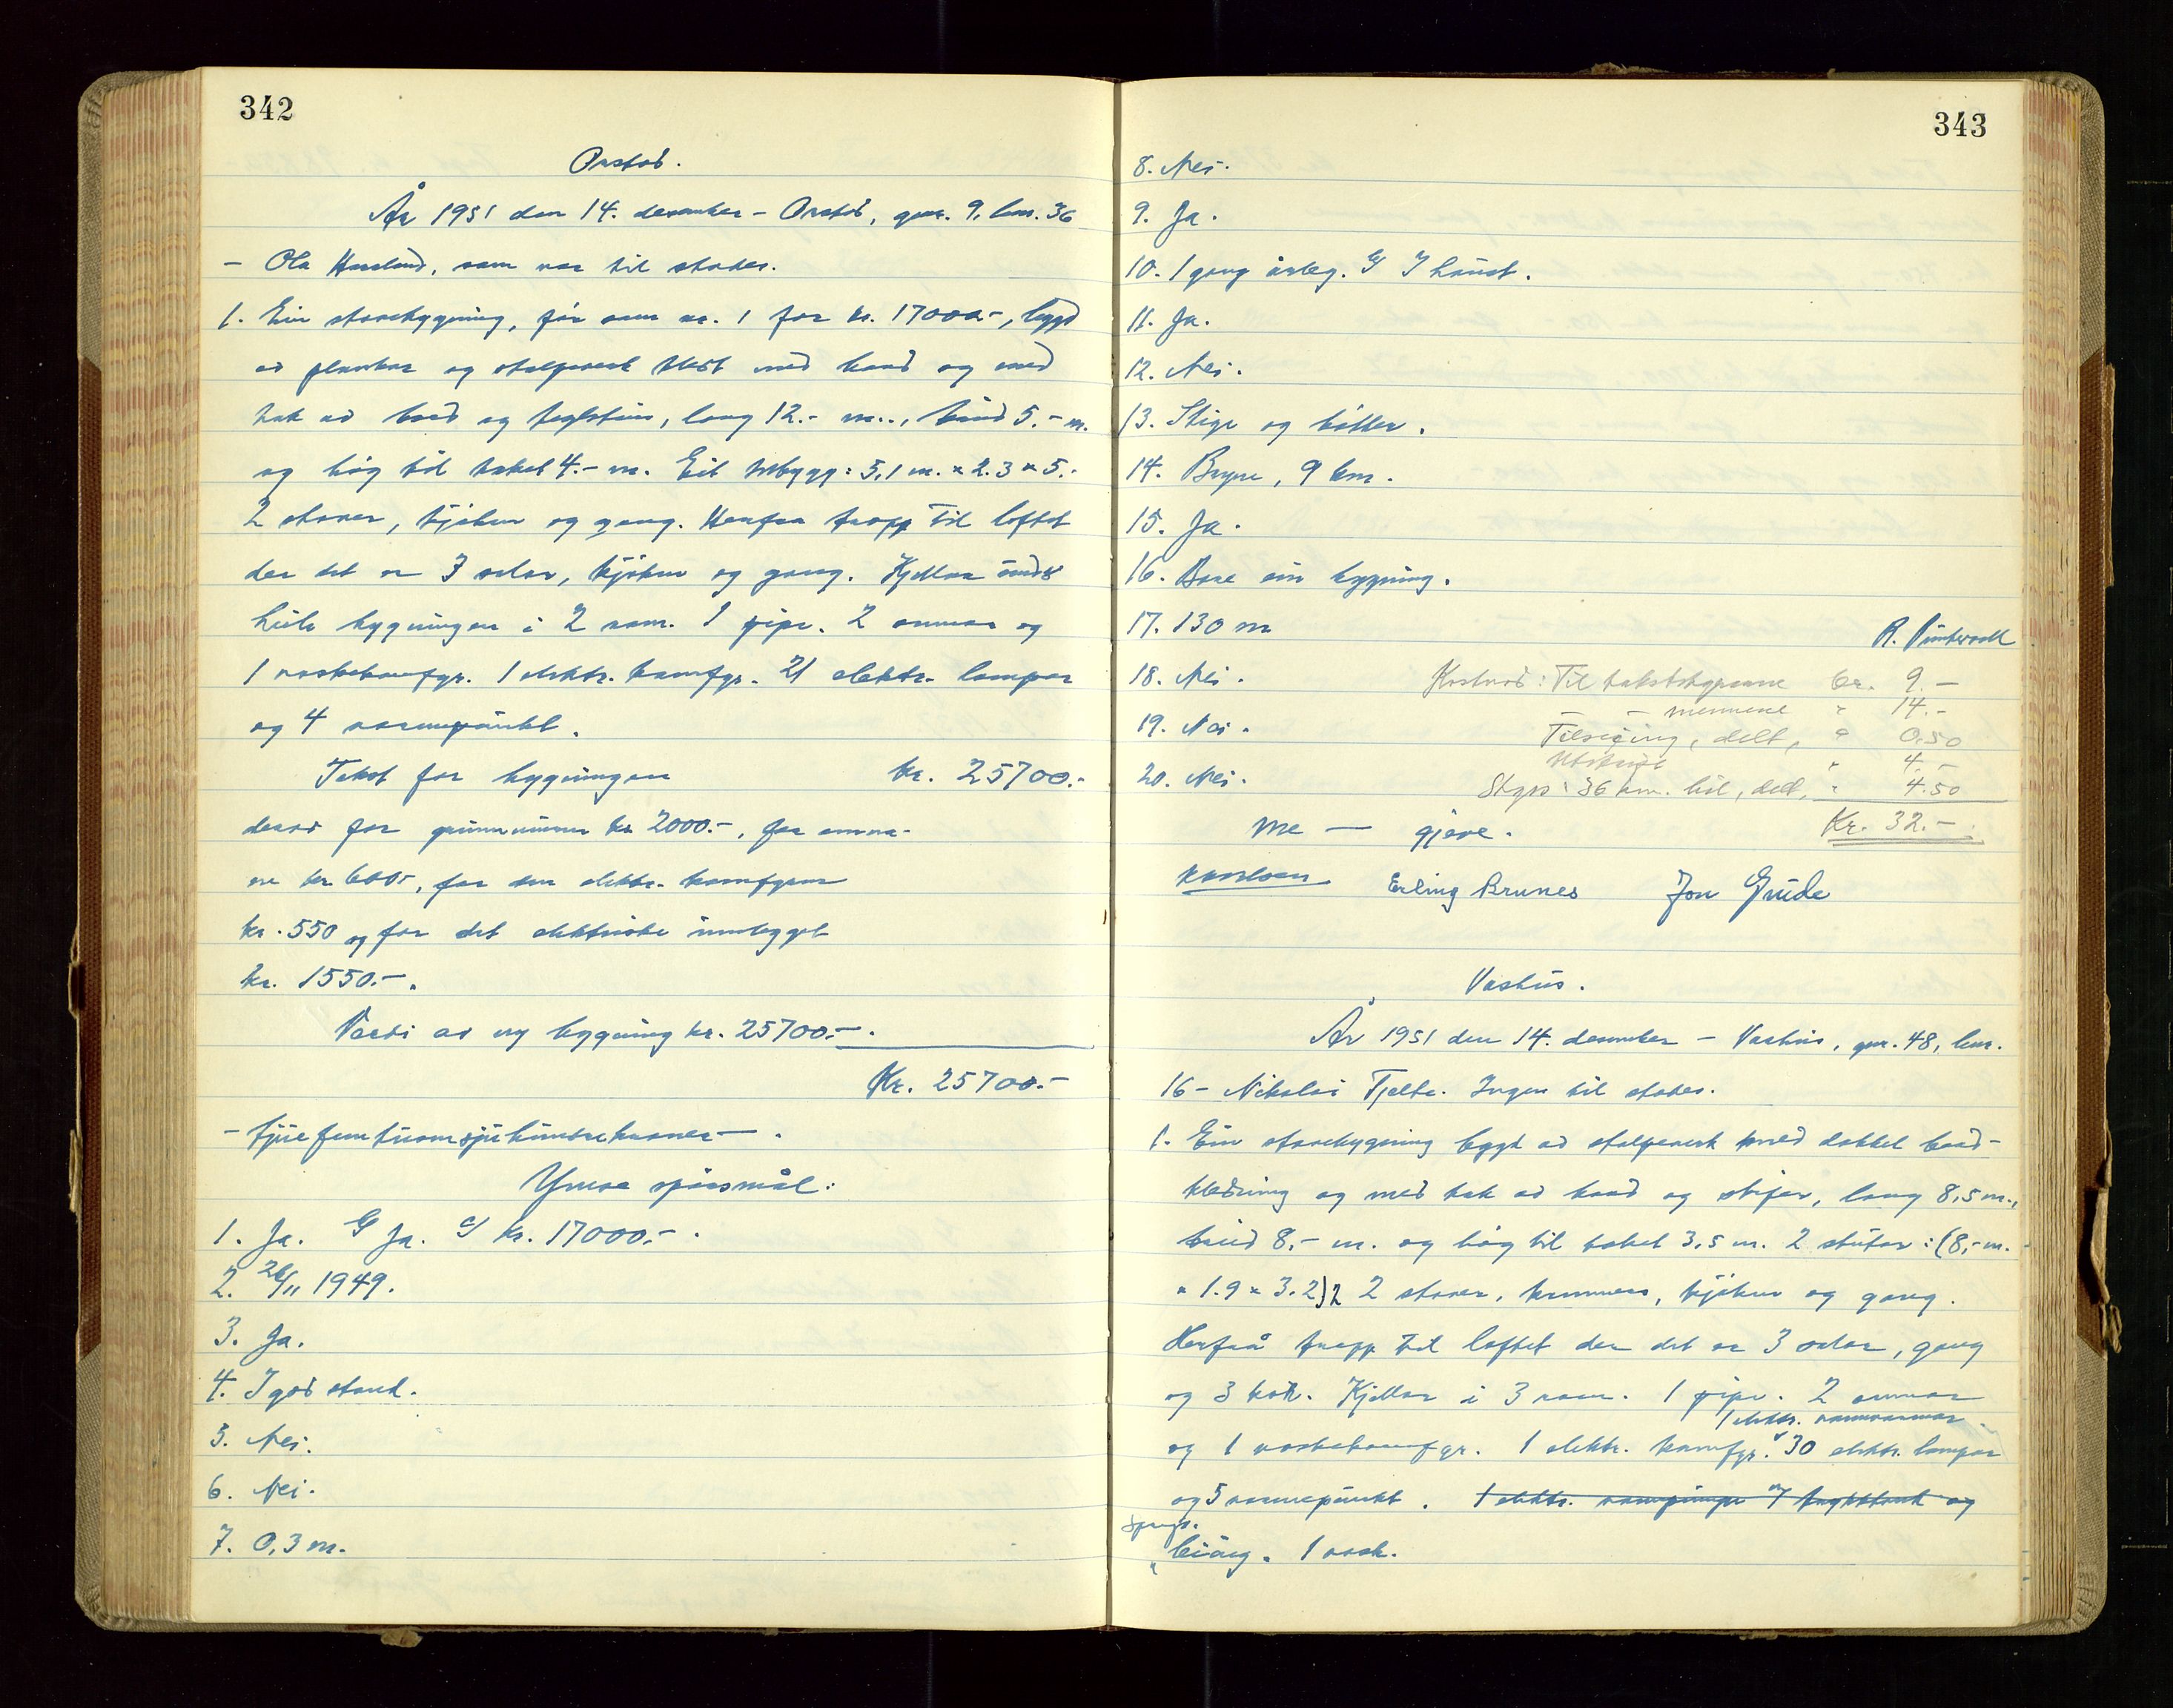 342
Orstad.
År 1951 den 14. desember - Orstad, gnr. 9, bnr. 36
- Ola Haaland, som var til stades.
1. Ein stovebygning, før som nr. 1 for kr. 17000.-, bygd
av plankar og stolpeverk kledt med bord og med
tak av bord og teglstein, lang 12.- m., breid 5.- m.
og høg til taket 4.- m. Eit tilbygg: 5,1 m. x 2.3 x 5.-
2 stover, kjøken og gang. Herfraa tropp til loftet
der det er 3 soler, kjøken og gang. Kjellar under
heile bygningen i 2 rom. 1 pipe. 2 omnar og
1 vaskekomfyr. 1 elektr. komfyr. 21 elektr. lampor
og 4 varmepunkt.
Takst for bygningen kr. 25700.-
derav for grunnmuren kr. 2000.-, for omna-
ne kr 600.-, for den elektr. komfyren
kr. 550 og for det elektriske innlegget
kr. 1550.-.
Verdi av ny bygning kr. 25700.-.
Kr. 25700.-
- tjuefemtusensjuhundrekroner - .
Ymse spørsmål:
1. Ja. b/ Ja. c/ kr. 17000.-.
2. 26/11 1949.
3. Ja.
4. I god stand.
5. Nei.
6. Nei.
7. 0,3 m.
343
8. Nei.
9. Ja.
10. 1 gang årleg. b/ I haust.
11. Ja.
12. Nei.
13. Stige og bøtter.
14. Bryne, 9 km.
15. Ja.
16. Bare ein bygning.
17. 130 m
R.
18. Nei.
Kostnad: Til takststyrarane kr. 9.-
19. Nei.
- - mennene " 14.-
Tilseiing, delt, " 0.50
20. Nei.
Utskrift " 4.-
Skyss 36 km. bil, delt, " 4.50
Me - gjeve. Kr. 32.-
Erling Brunes Jon Grude
Vashus.
År 1951 den 14. desember - Vashus, gnr. 48, bnr.
16 - Nikolai Tjelta. Ingen til stades.
1. Ein stovebygning bygd av stolpeverk med dobbel bord-
kledning og med tak av bord og skifer, lang 8,5 m.,
breid 8,- m. og høg til taket 3,5 m. 2 stuter: (8,- m.
x 1.9 x 3.2)2 2 stover, kammers, kjøken og gang.
Herfraå tropp til loftet der det er 3 soler, gang
og 3 kott. Kjellar i 3 rom. 1 pipe. 2 omnar
1 elektr. varmvarmar
og 1 vaskekomfyr. 1 elektr. komfyr. 30 elektr. lampor
og 5 varmepunkt. 1 elektr. vasspumpe m/ trykktank og
beiarg. 1 vask.